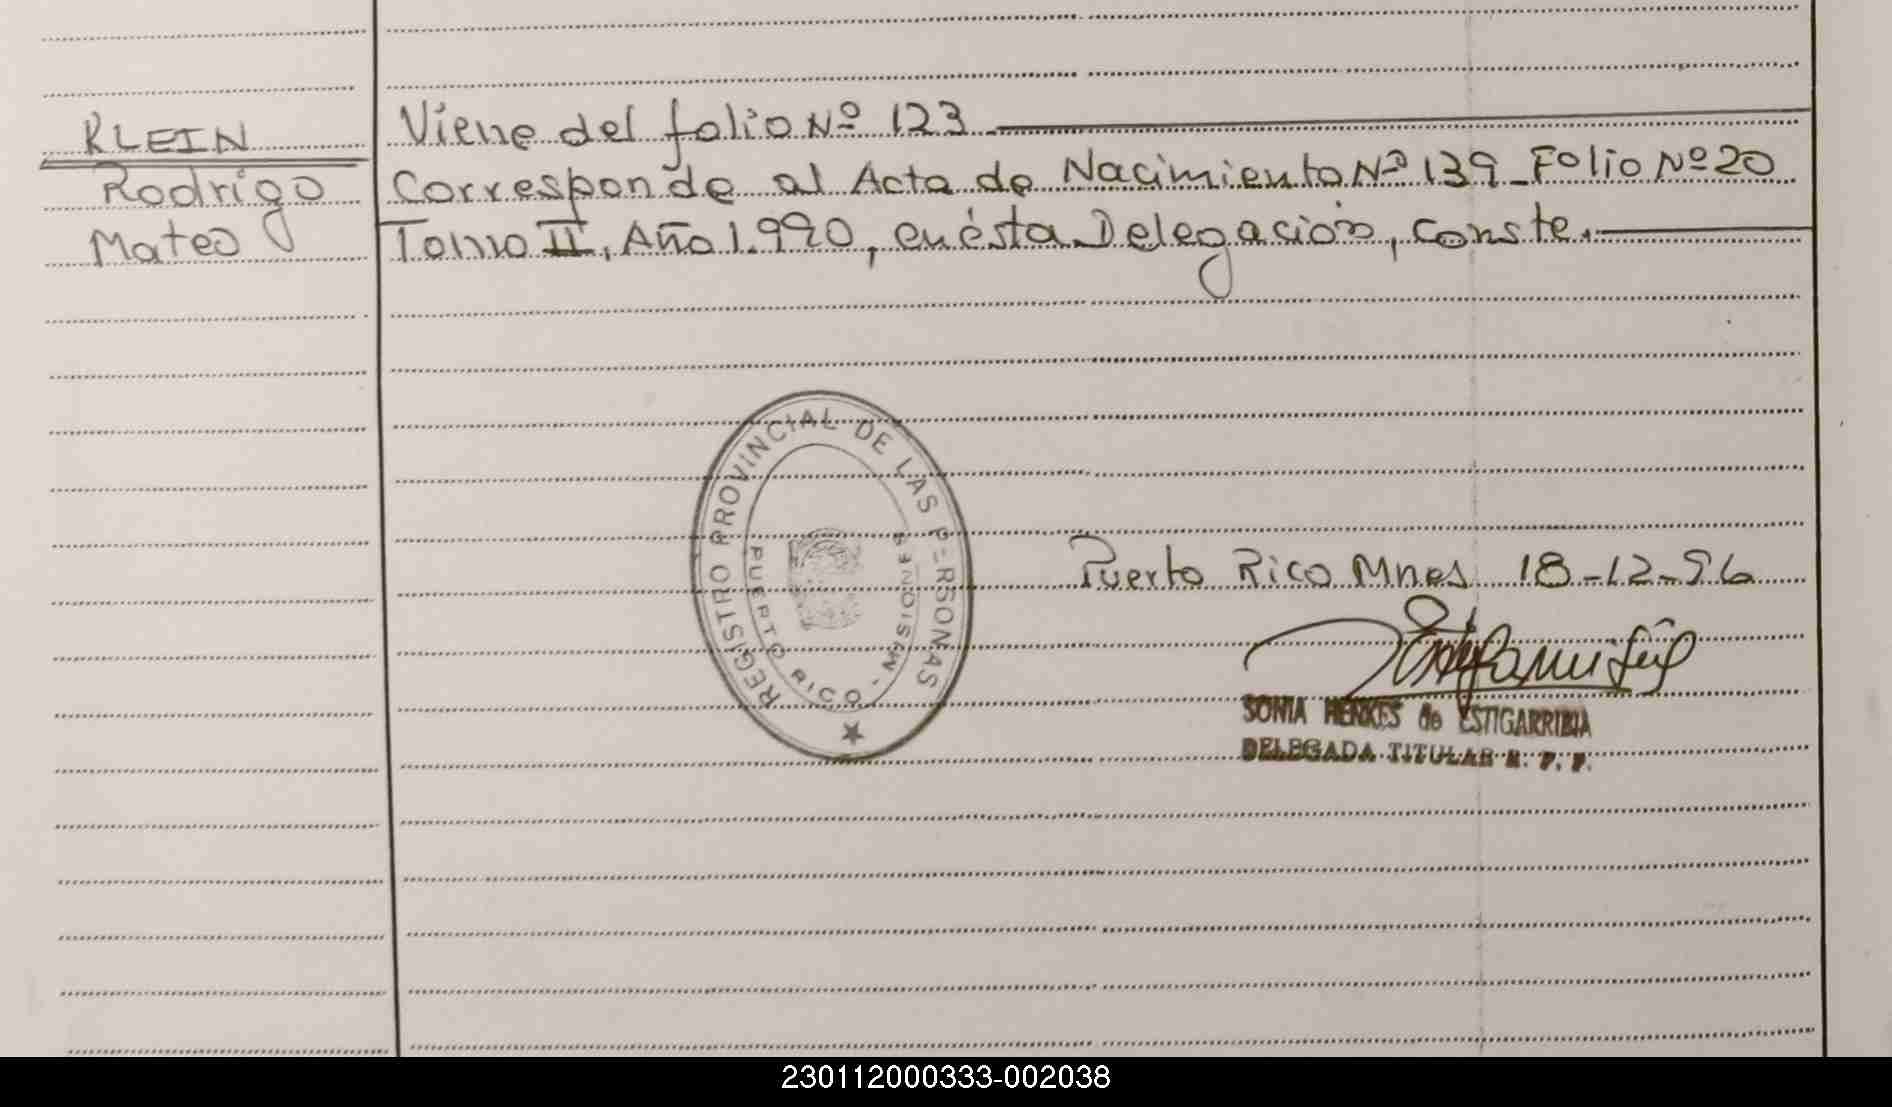 KLEIN
Rodrigo
Mateo
Viene del folio Nº 123
Corresponde al Acta de Nacimiento Nº 139 - Folio Nº 20
Tomo II, Año 1.990, en ésta Delegación, conste.
REGISTRO PROVINCIAL DE LAS PERSONAS
PUERTO RICO - MISIONES
Puerto Rico Mnes 18-12-96
SONIA HENKES de ESTIGARRIBIA
DELEGADA TITULAR R. P. P.
230112000333-002038